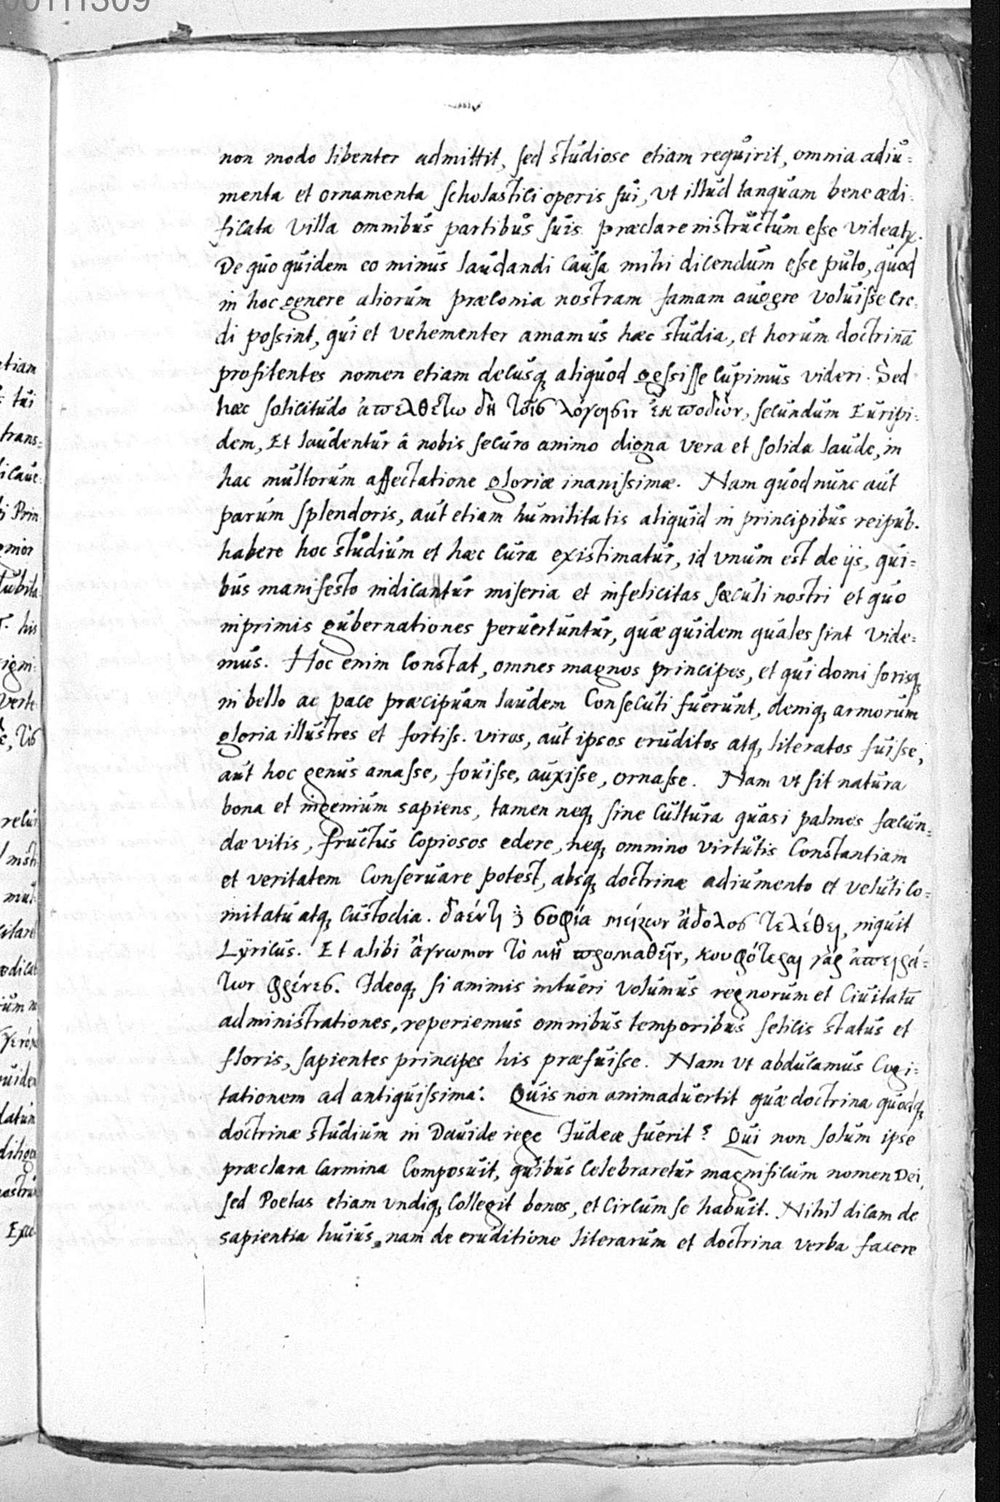 00111309
non modo libenter admittit, sed studiose etiam requirit, omnia adiu-
menta et ornamenta scholastici operis sui, ut illud tanquam bene ædi-
ficata villa omnibus partibus suis præclare instructum esse videatr.
De quo quidem eo minus laudandi causa mihi dicendum esse puto, quod
in hoc genere aliorum præconia nostram famam augere voluisse cre-
di possint, qui et vehementer amamus hæc studia, et horum doctrinā
profitentes nomen etiam decusq; aliquod gessisse cupimus videri. Sed
hæc solicitudo ἀπελθέτω δὴ τοῖς λόγοισιν ἐκποδών, secundum Euripi-
dem, Et laudentur â nobis securo animo digna vera et solida laude, in
hac multorum affectatione gloriæ inanissimæ. Nam quod nunc aut
parum splendoris, aut etiam humilitatis aliquid in principibus reipub.
habere hoc studium et hæc cura existimatur, id vnum est de ijs, qui-
bus manifesto indicantur miseria et infelicitas sæculi nostri et quo
inprimis gubernationes peruertuntur, quæ quidem quales sint vide-
mus. Hoc enim constat, omnes magnos principes, et qui domi forisq;
in bello ac pace præcipuam laudem consecuti fuerunt, deniq; armorum
gloria illustres et fortiss. viros, aut ipsos eruditos atq; literatos fuisse,
aut hoc genus amasse, fouisse, auxisse, ornasse. Nam vt sit natura
bona et ingenium sapiens, tamen neq; sine cultura quasi palmes fœcun-
dæ vitis, fructus copiosos edere, neq; omnino virtutis constantiam
et veritatem conseruare potest, absq; doctrinæ adiumento et veluti co-
mitatu atq; custodia. δαέντι ϗ σοφία μείζων ἄδολος τελέθει, inquit
Lyricus. Et alibi ἄγνωμον τὸ μὴ προμαθεῖν, κουφότεραι γὰρ ἀπειρά-
των φρένες. Ideoq; si animis intueri volumus regnorum et ciuitatū
administrationes, reperiemus omnibus temporibus felicis status et
floris, sapientes principes his præfuisse. Nam vt abducamus cogi-
tationem ad antiquissima: Quis non animaduertit quæ doctrina quodq;
doctrinæ studium in Dauide rege Iudeæ fuerit? Qui non solum ipse
præclara carmina composuit, quibus celebraretur magnificum nomen Dei,
sed Poetas etiam vndiq; collegit bonos, et circum se habuit. Nihil dicam de
sapientia huius, nam de eruditione literarum et doctrina verba facere